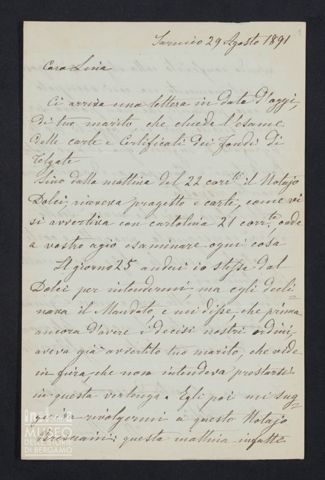 Sarnico 29 Agosto 1891
Cara Lina
Ci arriva una lettera in data d'oggi,
di tuo marito che chiede l'esame
delle carte e Certificati dei fondi di
Telgate
Sino dalla mattina del 22 corr.te il Notajo
Dolci, riceveva progetto e carte, come vi
si avvertiva con cartolina 21 corr.te, onde
a vostro agio esaminare ogni cosa
Il giorno 25 andai io stesso dal
Dolci per intendermi, ma egli decli=
nava il Mandato, e mi disse, che prima
ancora d'avere i decisi nostri ordini,
aveva già avvertito tuo marito, che vide
in fiera, che non intendeva prestarsi
in questa vertenza. Egli poi mi sug=
gerì rivolgermi a questo Notajo
questa mattina infatti
MUSEO
DELLE STORIE
DI BERGAMO